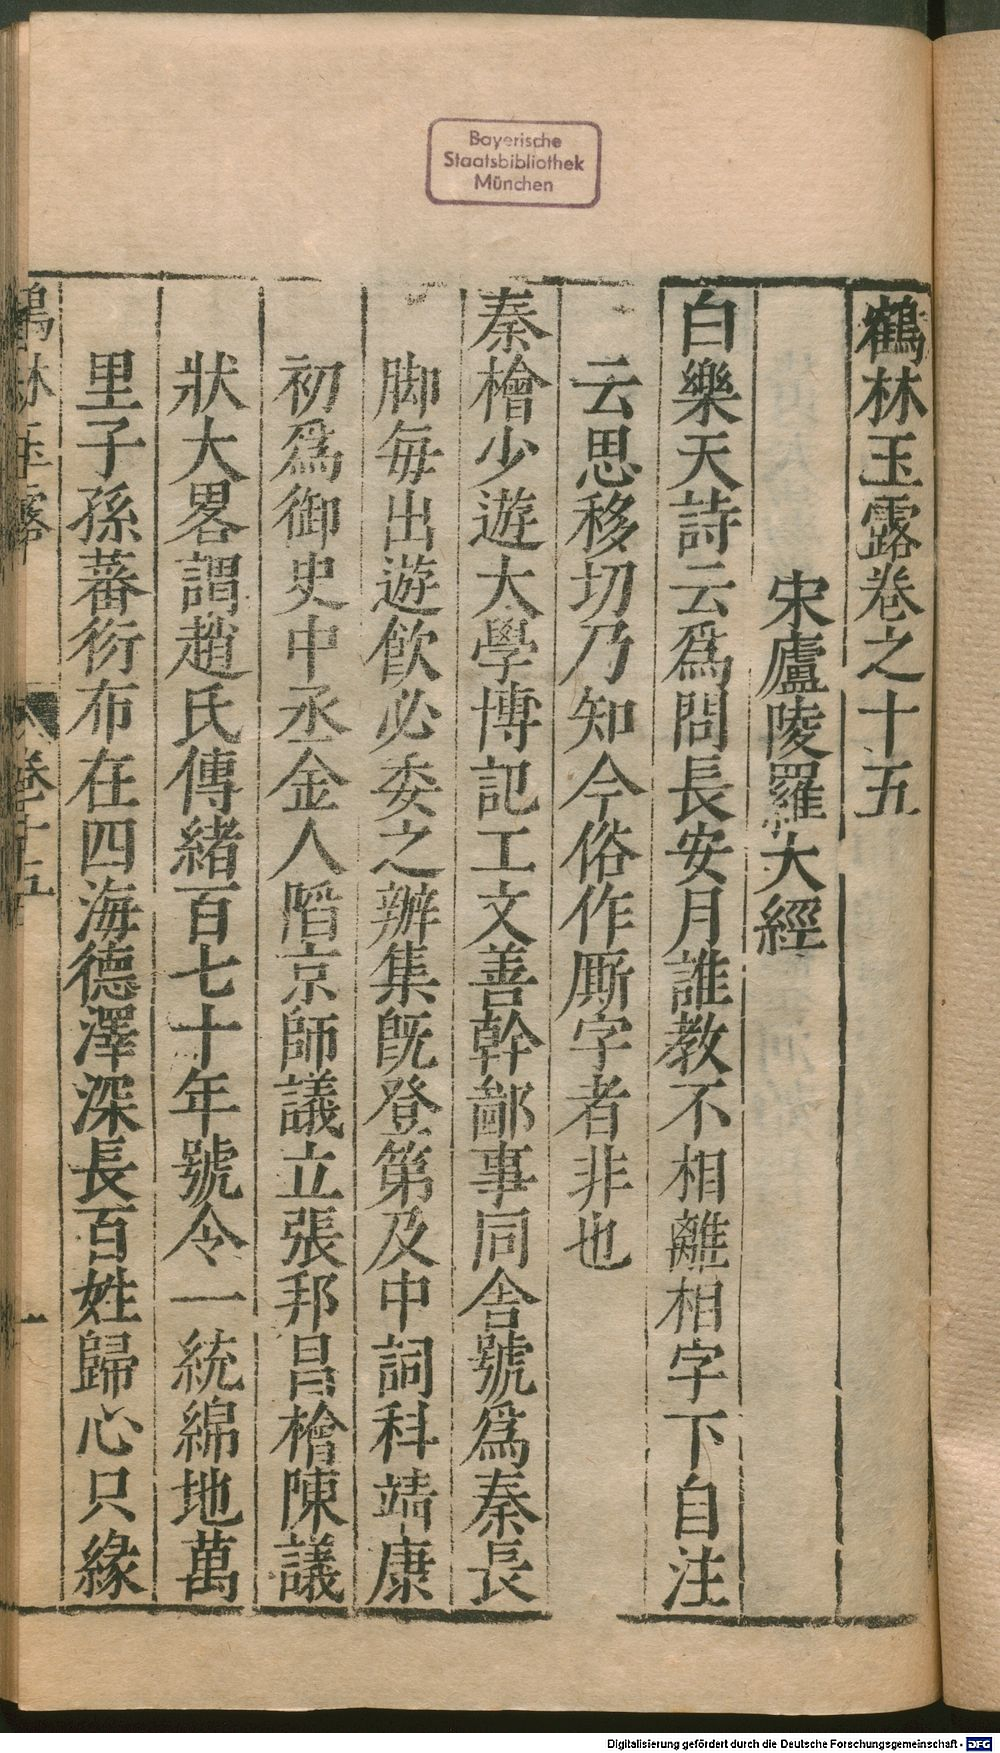 Bayerische
Staatsbibliothek
München
鶴林玉露卷之十五
宋廬陵羅大經
白樂天詩云爲問長安月誰教不相離相字下自注
云思移切乃知今俗作厮字者非也
秦檜少遊大學博記工文善幹鄙事同舎號爲秦長
脚每出遊飮必委之辦集旣登第及中詞科靖康
初爲御史中丞金人陷京師議立張邦昌檜陳議
狀大畧謂趙氏傳緒百七十年號令一統綿地萬
里子孫蕃衍布在四海德澤深長百姓歸心只緣
鶴林玉露
卷十五
一
Digitalisierung gefördert durch die Deutsche Forschungsgemeinschaft - DFG